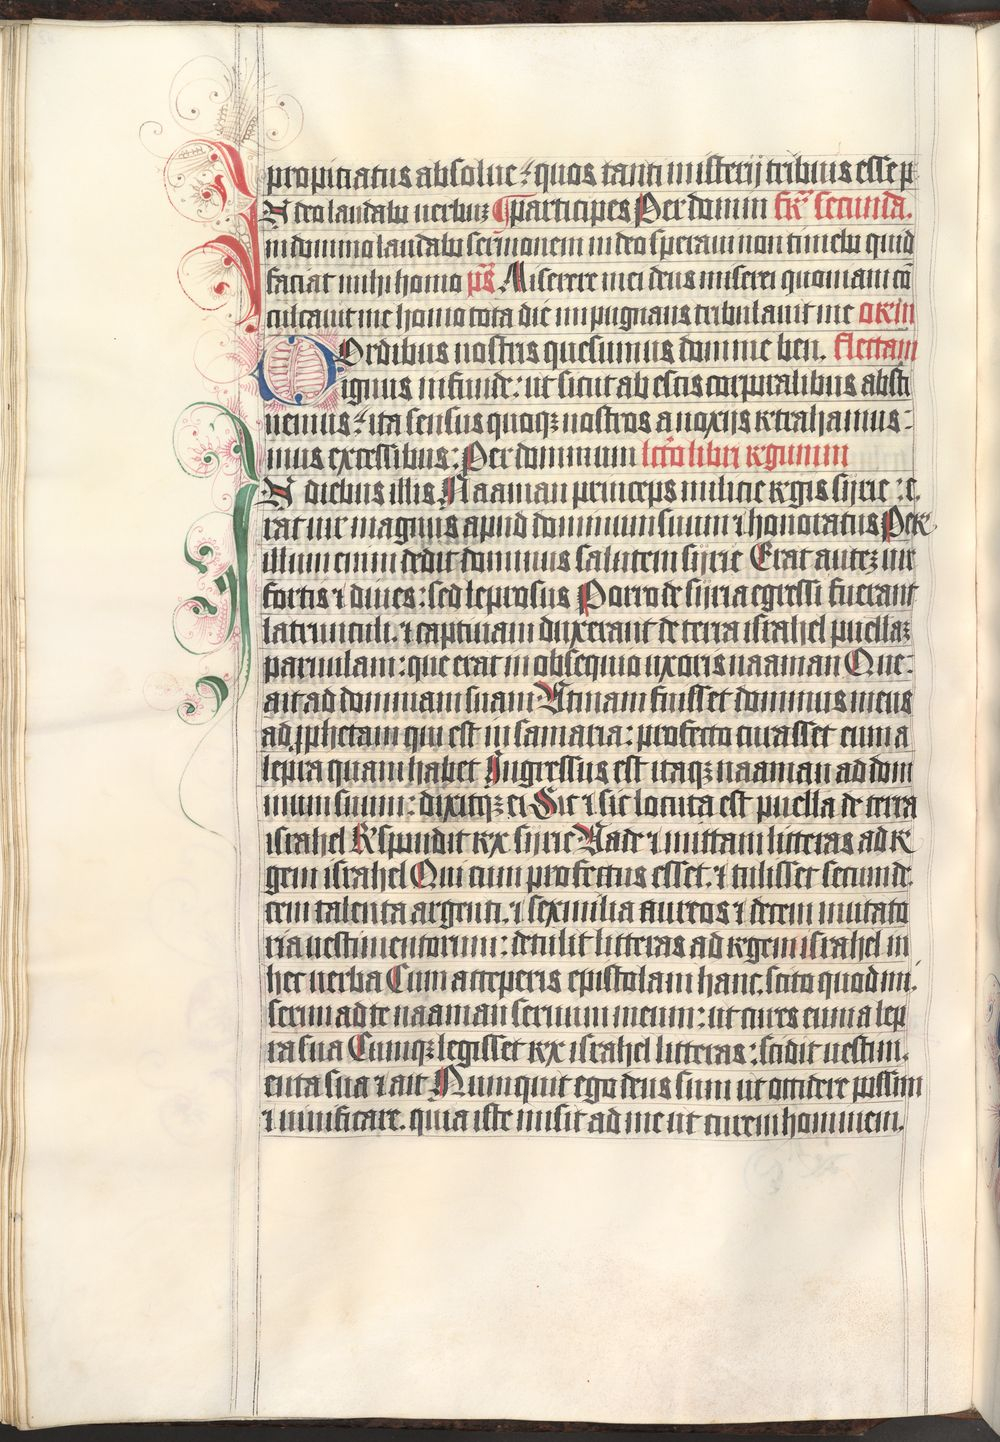 propiciatus absolue: quos tanti misterij tribuis esse p
In deo laudabo uerbuz participes Per dominum fr̃ secunda.
in domino laudabo sermonem in deo speraui non timebo quid
faciat mihi homo ps̃ Miserere mei deus miserei quoniam cō
culcauit me homo tota die inpugnans tribulauit me orem
Cordibus nostris quesumus domine ben. flectam
ignus infunde: ut sicut ab escis corporalibus absti
nemus: ita sensus quoqꝫ nostros a noxijs retrahamus:
mus excessibus: Per dominum lectō libri regumm
In diebus illis Naaman princeps milicie regis sijrie :e.
rat uir magnus apud dominum suum ⁊ honoratus Per
illum enim dedit dominus salutem sijrie Erat autez uir
fortis ⁊ diues: sed leprosus Porro de sijria egressi fuerant
latrunculi. ⁊ captiuam duxerant de terra israhel puellaꝫ
paruulam: que erat in obsequio uxoris naaman Que:
ait ad dominam suam Utinam fuisset dominus meus
ad ꝓphetam qui est in samaria: profecto curasset eum a
lepra quam habet Ingressus est itaqꝫ naaman ad dom
inum suum: dixitqꝫ ei Sic ⁊ sic locuta est puella de terra
israhel Respondit rex sijrie Uade ⁊ mittam litteras ad re
gem israhel Qui cum profectus esset. ⁊ tulisset secum de.
cem talenta argenti. ⁊ sexmilia aureos ⁊ decem mutato
ria uestimentorum: detulit litteras ad regem israhel in
hec uerba Cum acceperis epistolam hanc. scito quod mi.
serim ad te naaman seruum meum: ut cures eum a lep
ra sua Cumqꝫ legisset rex israhel litteras: scidit uestim.
enta sua ⁊ ait Numquit ego deus sum ut occidere possim
⁊ uiuificare. quia iste misit ad me ut curem hominem.